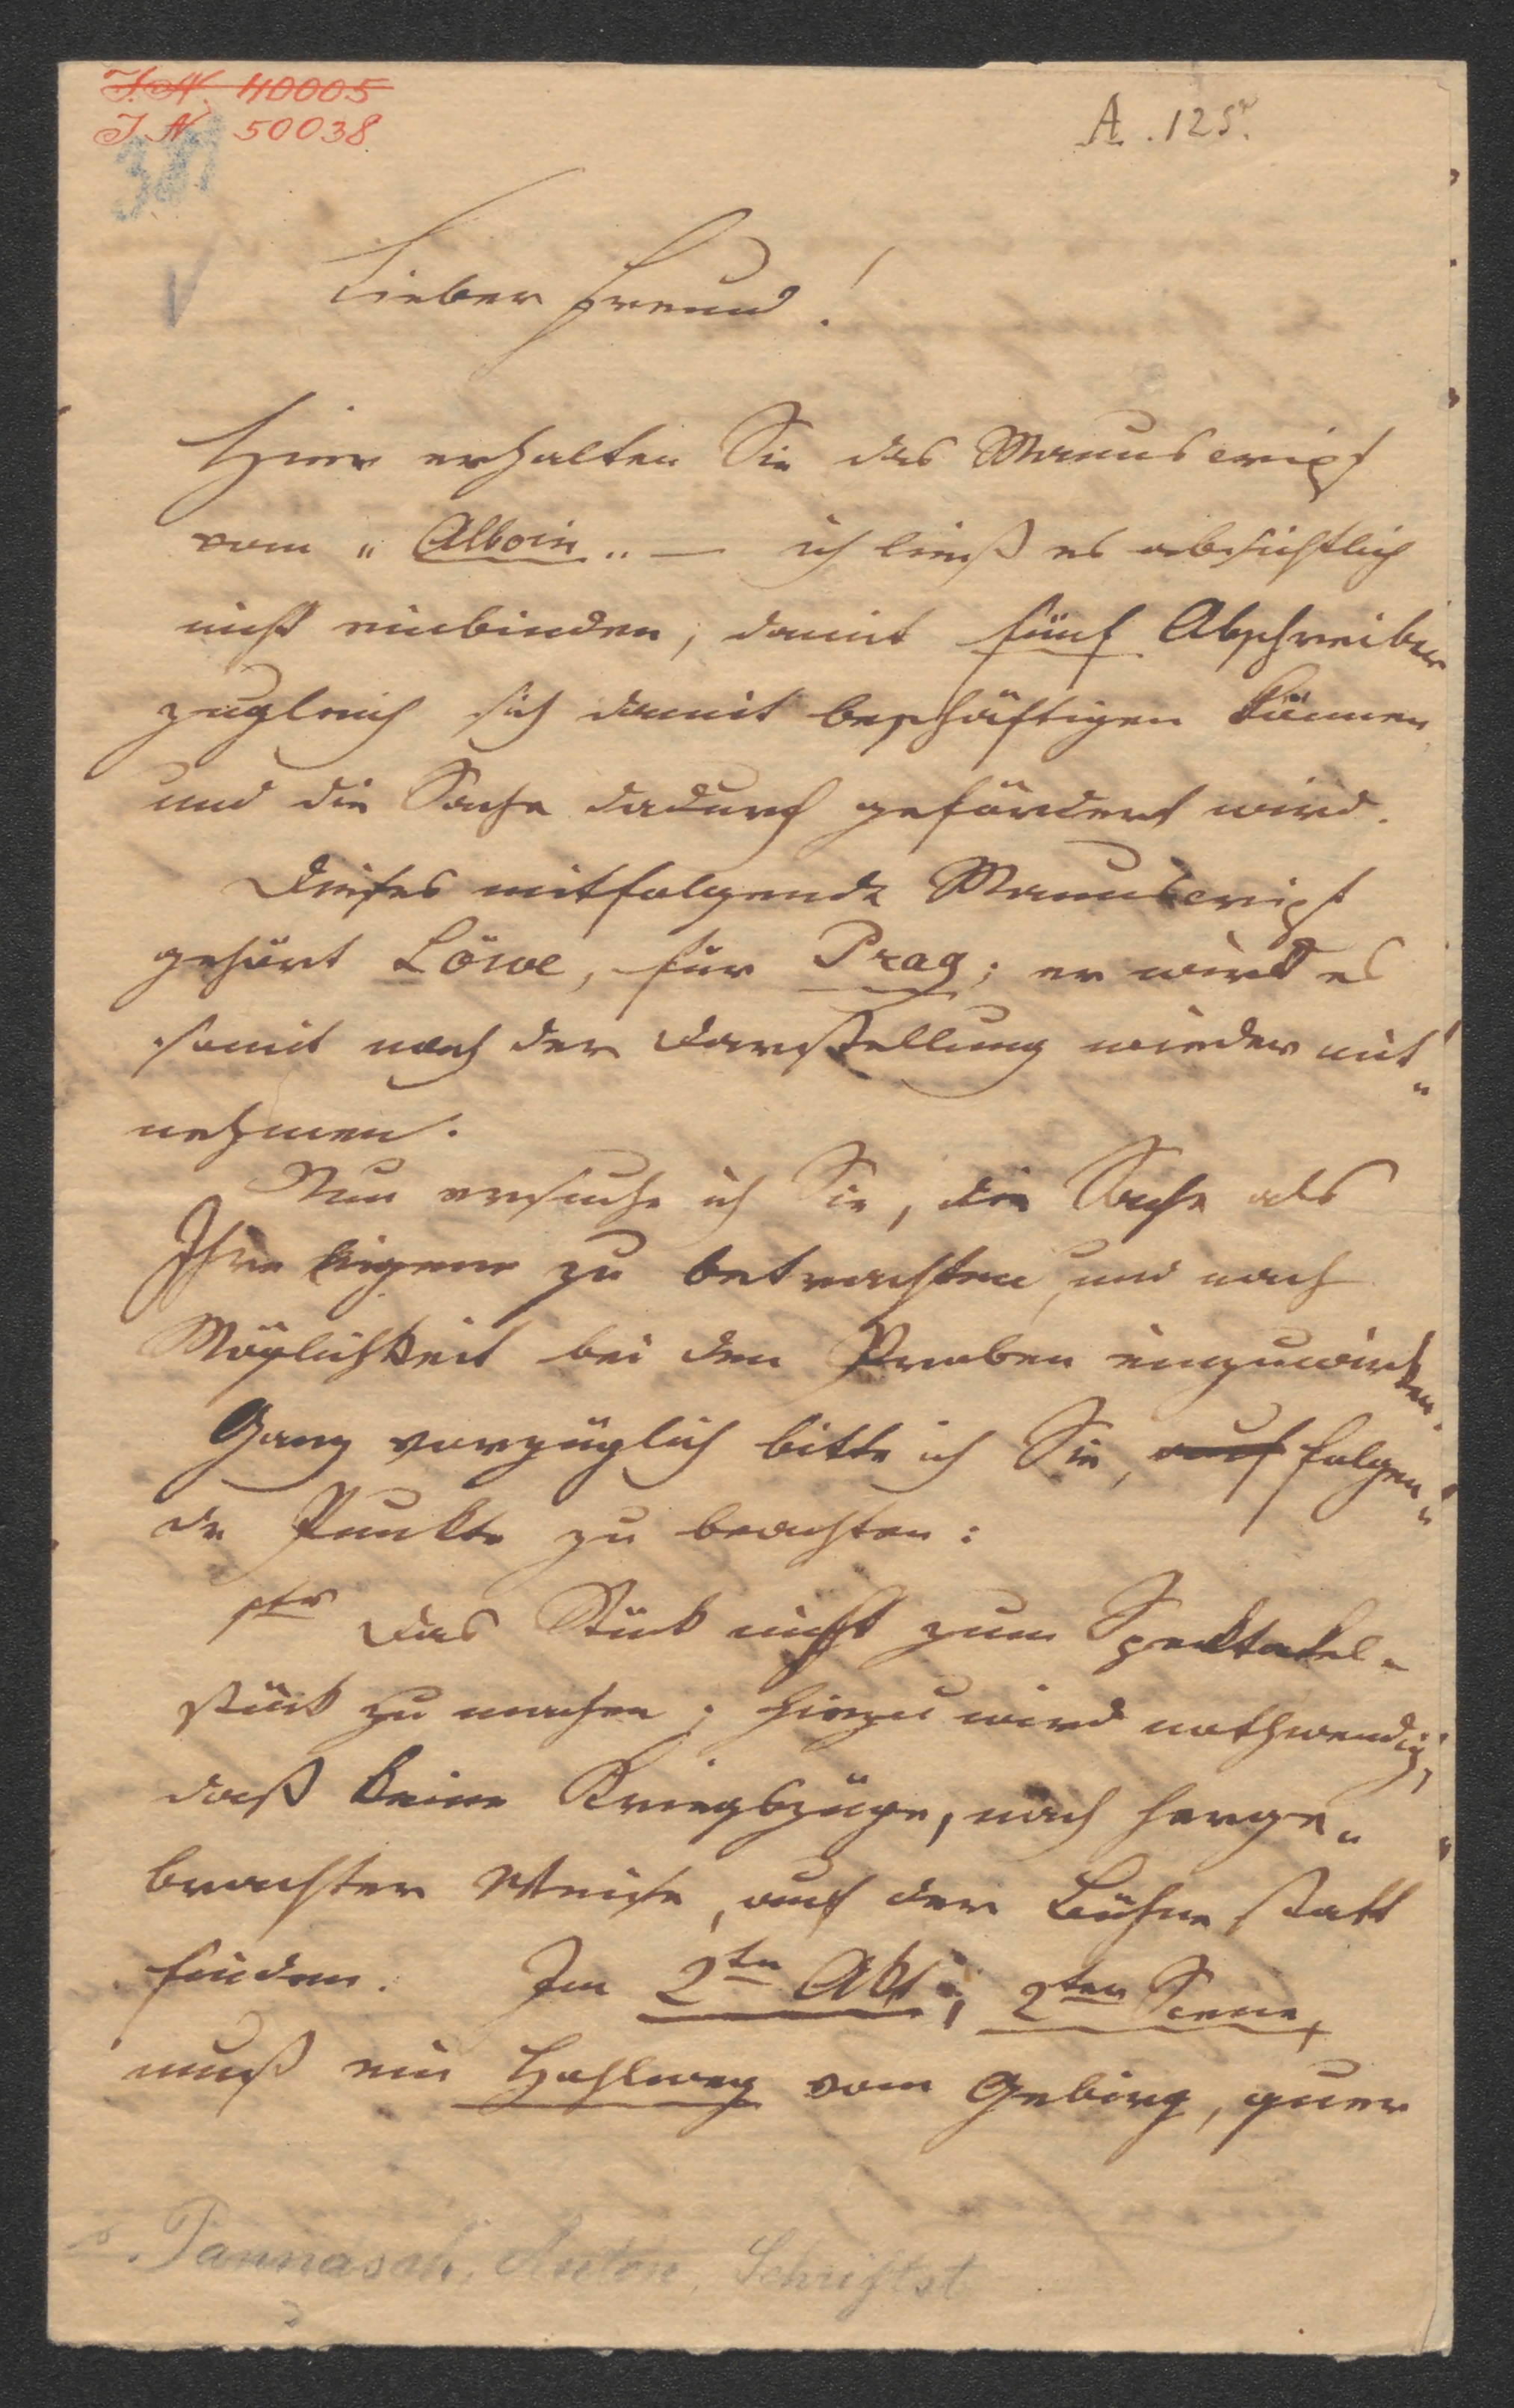 I. N. 40005
I. N. 50038
A. 125.
Lieber Freund!
Hier erhalten Sie das Manuscript
vom „Alboin„ — ich ließ es absichtlich
nicht einbinden, damit fünf Abschreiber
zugleich sich damit beschäftigen können
und die Sache dadurch gefördert wird.
Dieses mitfolgende Manuscript
gehört Löwe, für Prag; er wird es
somit nach der Darstellung wieder mit„
nehmen.
Nun ersuche ich Sie, die Sache als
Ihre eigene zu betrachten, und nach
Möglichkeit bei den Proben einzuwirken.
Ganz vorzüglich bitte ich Sie, auf folgen„
de Punkte zu beachten:
Das Stück nicht zum Spektakel„
stück zu machen; hiezu wird nothwendig,
daß keine Kriegszüge, nach herge„
brachter Weise, auf der Bühne statt
finden. Im 2ten Akt, 2ter Scene,
muß ein Hohlweg vom Gebirg, quer
Pannasch, Anton, Schriftst